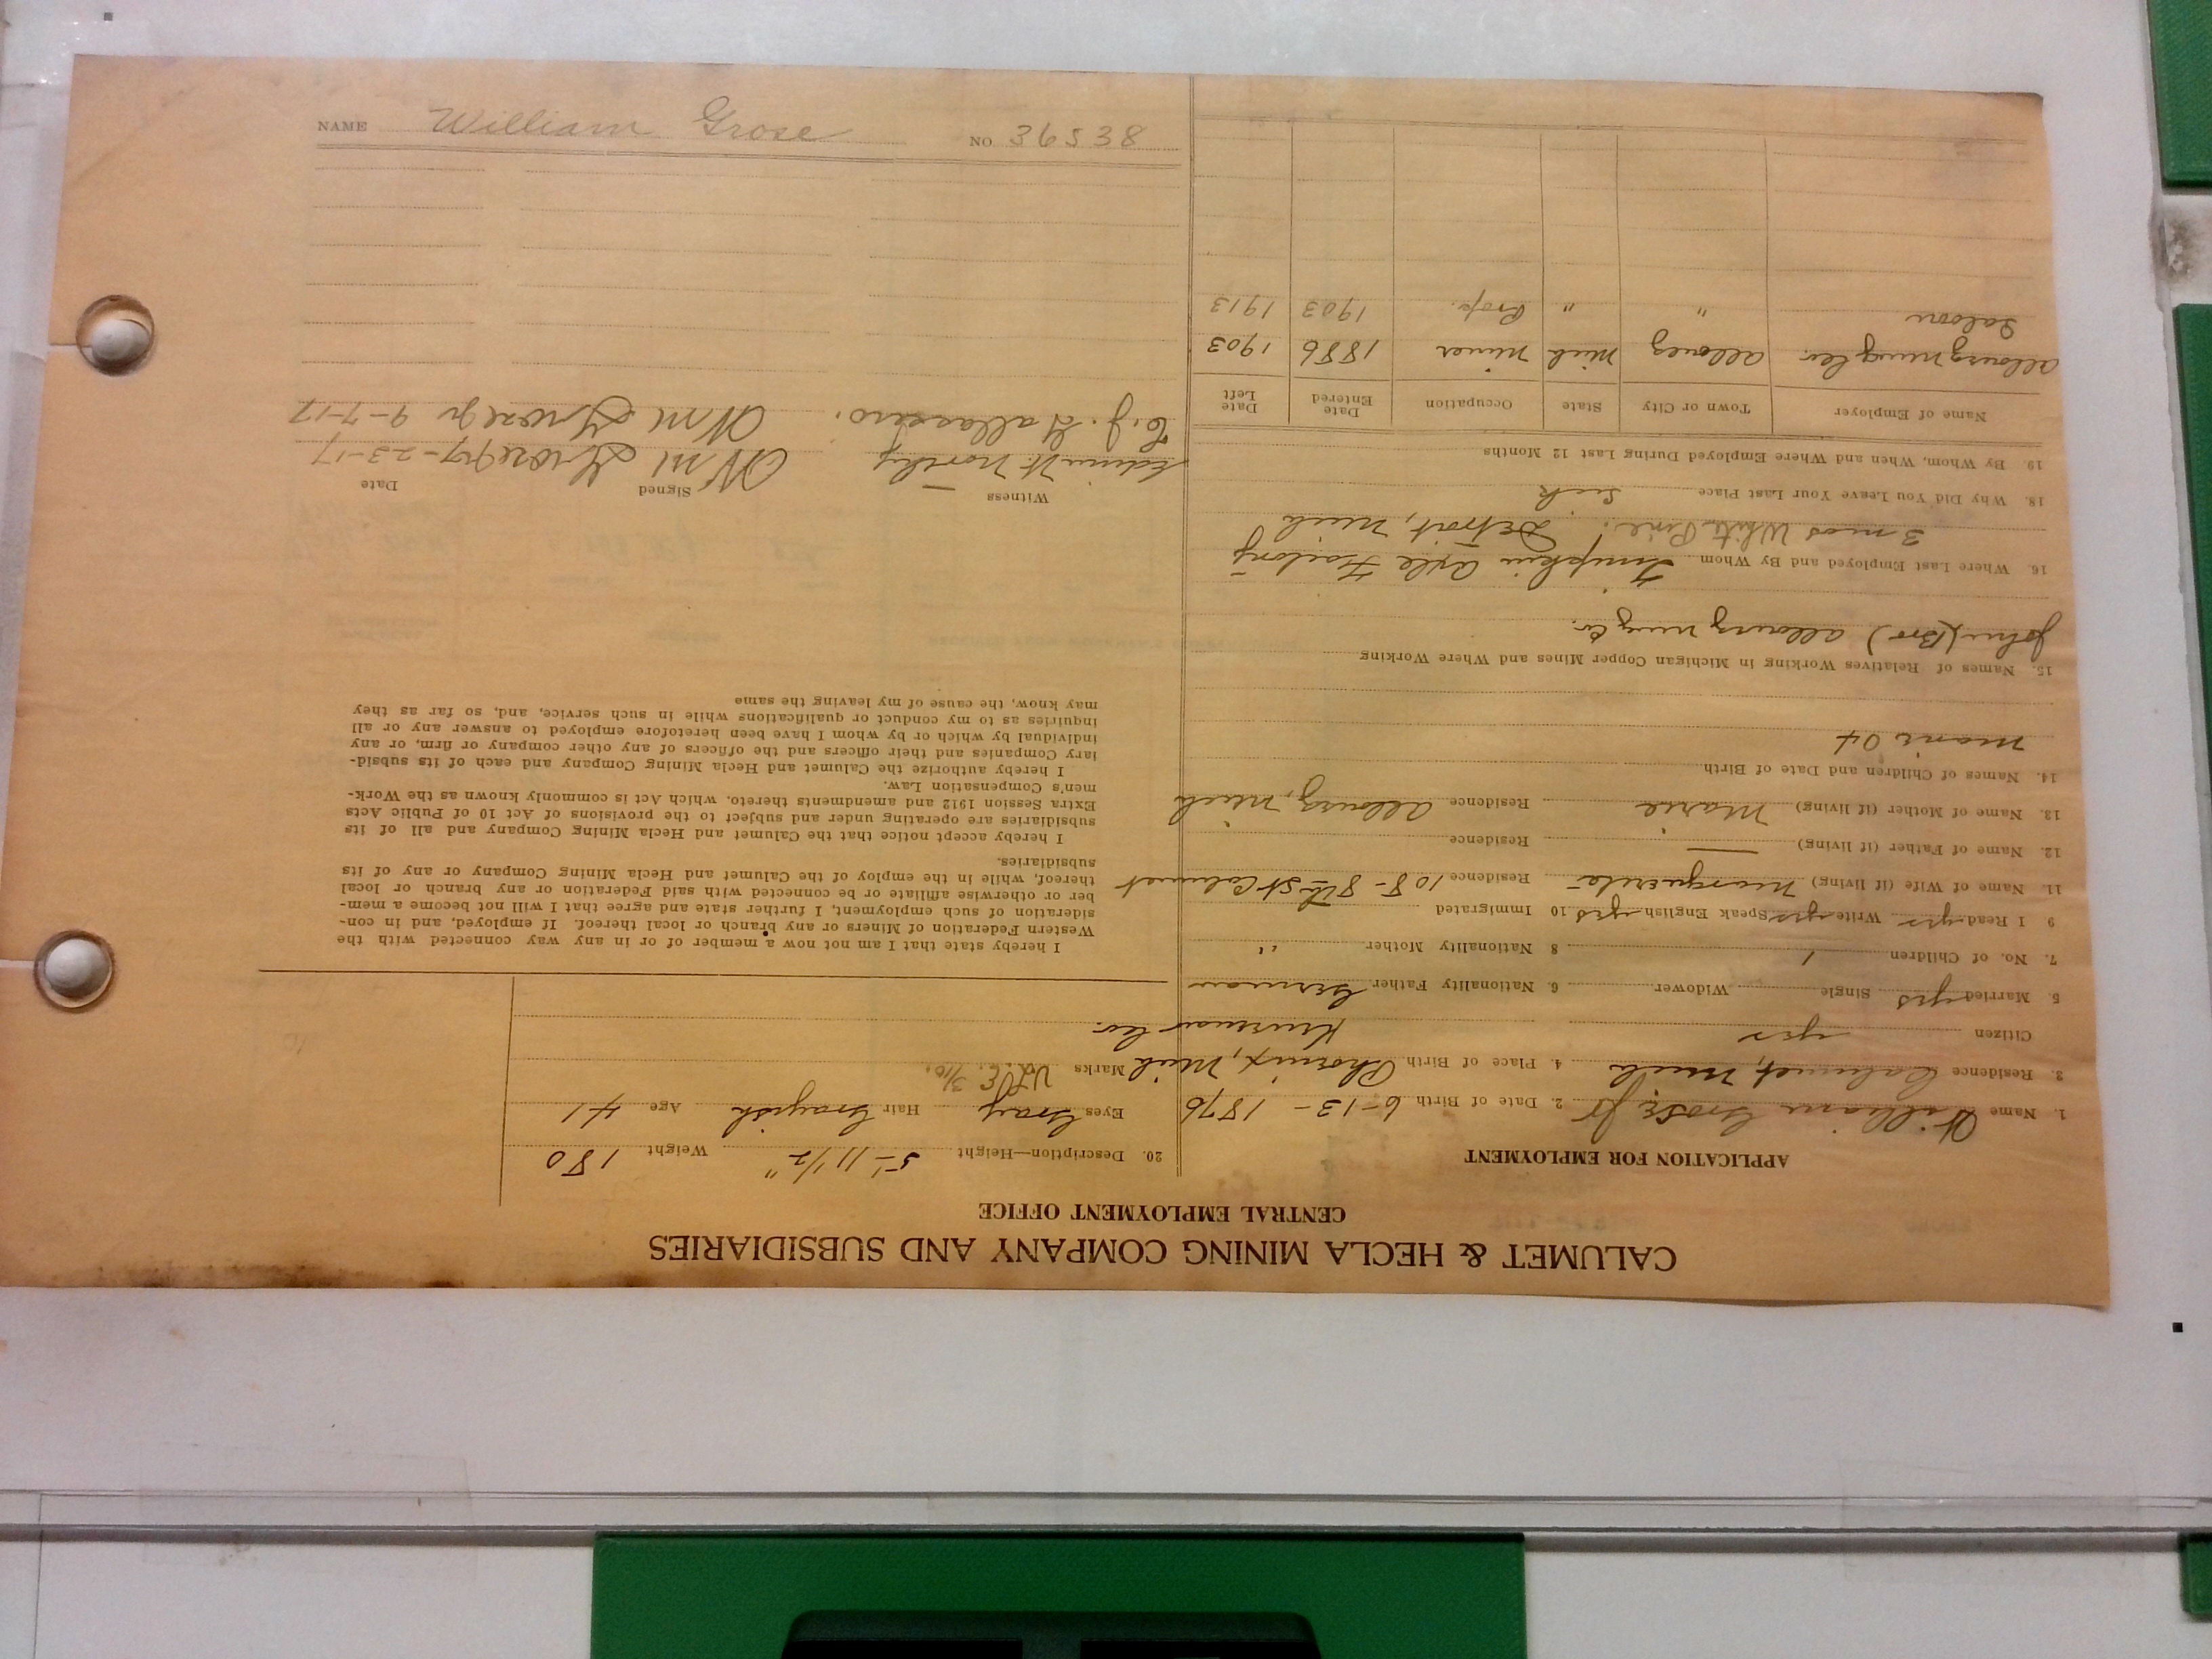 CALUMET & HECLA MINING COMPANY AND SUBSIDIARIES
CENTRAL EMPLOYMENT OFFICE
APPLICATION FOR EMPLOYMENT
1. Name William Grose Jr 2. Date of Birth 6-13-1876
3. Residence Calumet, Mich 4. Place of Birth Phoenix, Mich
Citizen yes
5. Married yes Single Widower 6. Nationality Father German
7. No. of Children 1 8 Nationality Mother "
9 I Read yes Write yes Speak English yes 10 Immigrated
11. Name of Wife (if living) Marguerite Residence 108-8th St Calumet
12. Name of Father (if living) — Residence
13. Name of Mother (if living) Marie Residence Allouez, Mich
14. Names of Children and Date of Birth
15. Names of Relatives Working in Michigan Copper Mines and Where Working
John (Bro) Allouez Ming Co.
16. Where Last Employed and By Whom Timpkin Axle Factory
3 mos White Pine. Detroit, Mich
18. Why Did You Leave Your Last Place Sick
19. By Whom, When and Where Employed During Last 12 Months
Name of Employer Town or City State Occupation Date Entered Date Left
Allouez Ming Co. Allouez Mich Miner 1886 1903
Saloon " " Prop. 1903 1913
20. Description—Height 5-11 1/2" Weight 180
Eyes Gray Hair Grayish Age 41
Marks
I hereby state that I am not now a member of or in any way connected with the
Western Federation of Miners or any branch or local thereof. If employed, and in con-
sideration of such employment, I further state and agree that I will not become a mem-
ber or otherwise affiliate or be connected with said Federation or any branch or local
thereof, while in the employ of the Calumet and Hecla Mining Company or any of its
subsidiaries.
I hereby accept notice that the Calumet and Hecla Mining Company and all of its
subsidiaries are operating under and subject to the provisions of Act 10 of Public Acts
Extra Session 1912 and amendments thereto, which Act is commonly known as the Work-
men's Compensation Law.
I hereby authorize the Calumet and Hecla Mining Company and each of its subsid-
iary Companies and their officers and the officers of any other company or firm, or any
individual by which or by whom I have been heretofore employed to answer any or all
inquiries as to my conduct or qualifications while in such service, and, so far as they
may know, the cause of my leaving the same
Witness Signed Date
Edwin W. Northey Wm Grose Jr 7-23-17
C. J. Wm Grose Jr 9-7-17
NAME William Grose NO. 36538